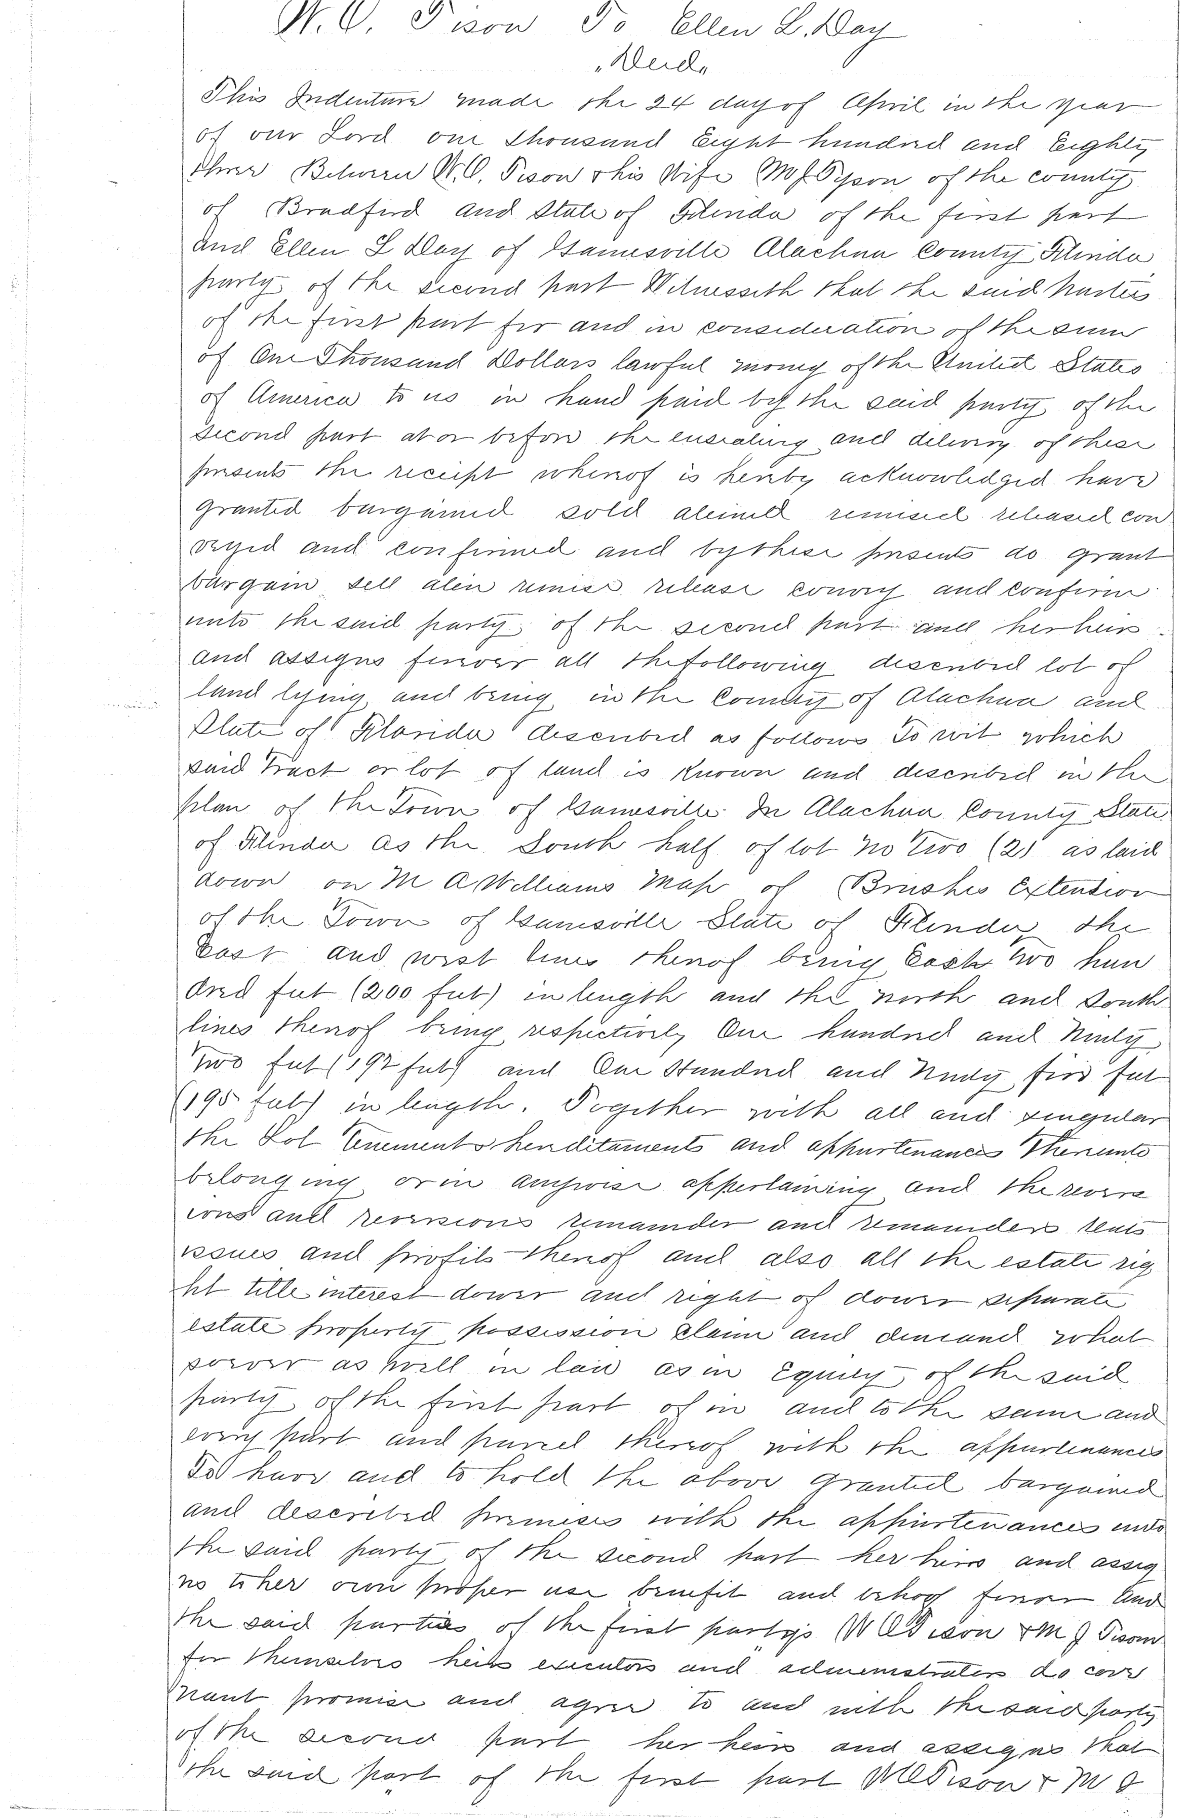 W. O. Tison To Ellen L. Day
"Deed"
This Indenture made the 24 day of April in the year
of our Lord one thousand Eight hundred and Eighty
three Between W. O. Tison & his Wife M J Tyson of the county
of Bradford and State of Florida of the first part
and Ellen L Day of Gainesville Alachua County Florida
party of the second part Witnesseth that the said parties
of the first part for and in consideration of the sum
of One Thousand Dollars lawful money of the United States
of America to us in hand paid by the said party of the
second part at or before the ensealing and delivery of these
presents the receipt whereof is hereby acknowledged have
granted bargained sold aliened remised released con
veyed and confirmed and by these presents do grant
bargain sell alien remise release convey and confirm
unto the said party of the second part and her heirs
and assigns forever all the following described lot of
land lying and being in the County of Alachua and
State of Florida described as follows To wit which
said Tract or lot of land is known and described in the
plan of the Town of Gainesville In Alachua County State
of Florida as the South half of lot no Two (2) as laid
down on M A Williams Map of Brushes Extention
of the Town of Gainesville State of Florida the
East and west lines thereof being Each Two hun
dred feet (200 feet) in length and the north and South
lines thereof being respectively One hundred and Ninty
Two feet (192 feet) and One Hundred and Ninty five feet
(195 feet) in length. Together with all and singular
the Lot Tenements hereditaments and appurtenances Thereunto
belonging or in anywise appertaining and the revers
ions and reversions remainder and remainders rents
issues and profits thereof and also all the estate rig
ht title interest dower and right of dower separate
estate property possession claim and demand what
soever as well in law as in Equity of the said
party of the first part of in and to the same and
every part and parcel thereof with the appurtenances
To have and to hold the above granted bargained
and described premises with the appurtenances unto
the said party of the second part her heirs and assig
ns to her own proper use benefit and behoof forever And
the said parties of the first partys W O Tison & M J Tison
for themselves heirs executors and admenistrators do cove
nant promise and agree to and with the said party
of the second part her heirs and assigns that
the said part of the first part W O Tison & M J